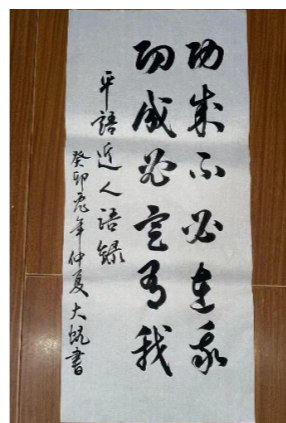 功成不必在我
功成必定有我
平語近人語録
癸卯兎年仲夏大帆書